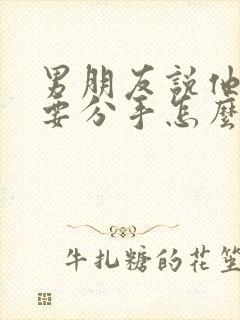 男朋友說他
要分手怎麼
牛扎糖的花笙